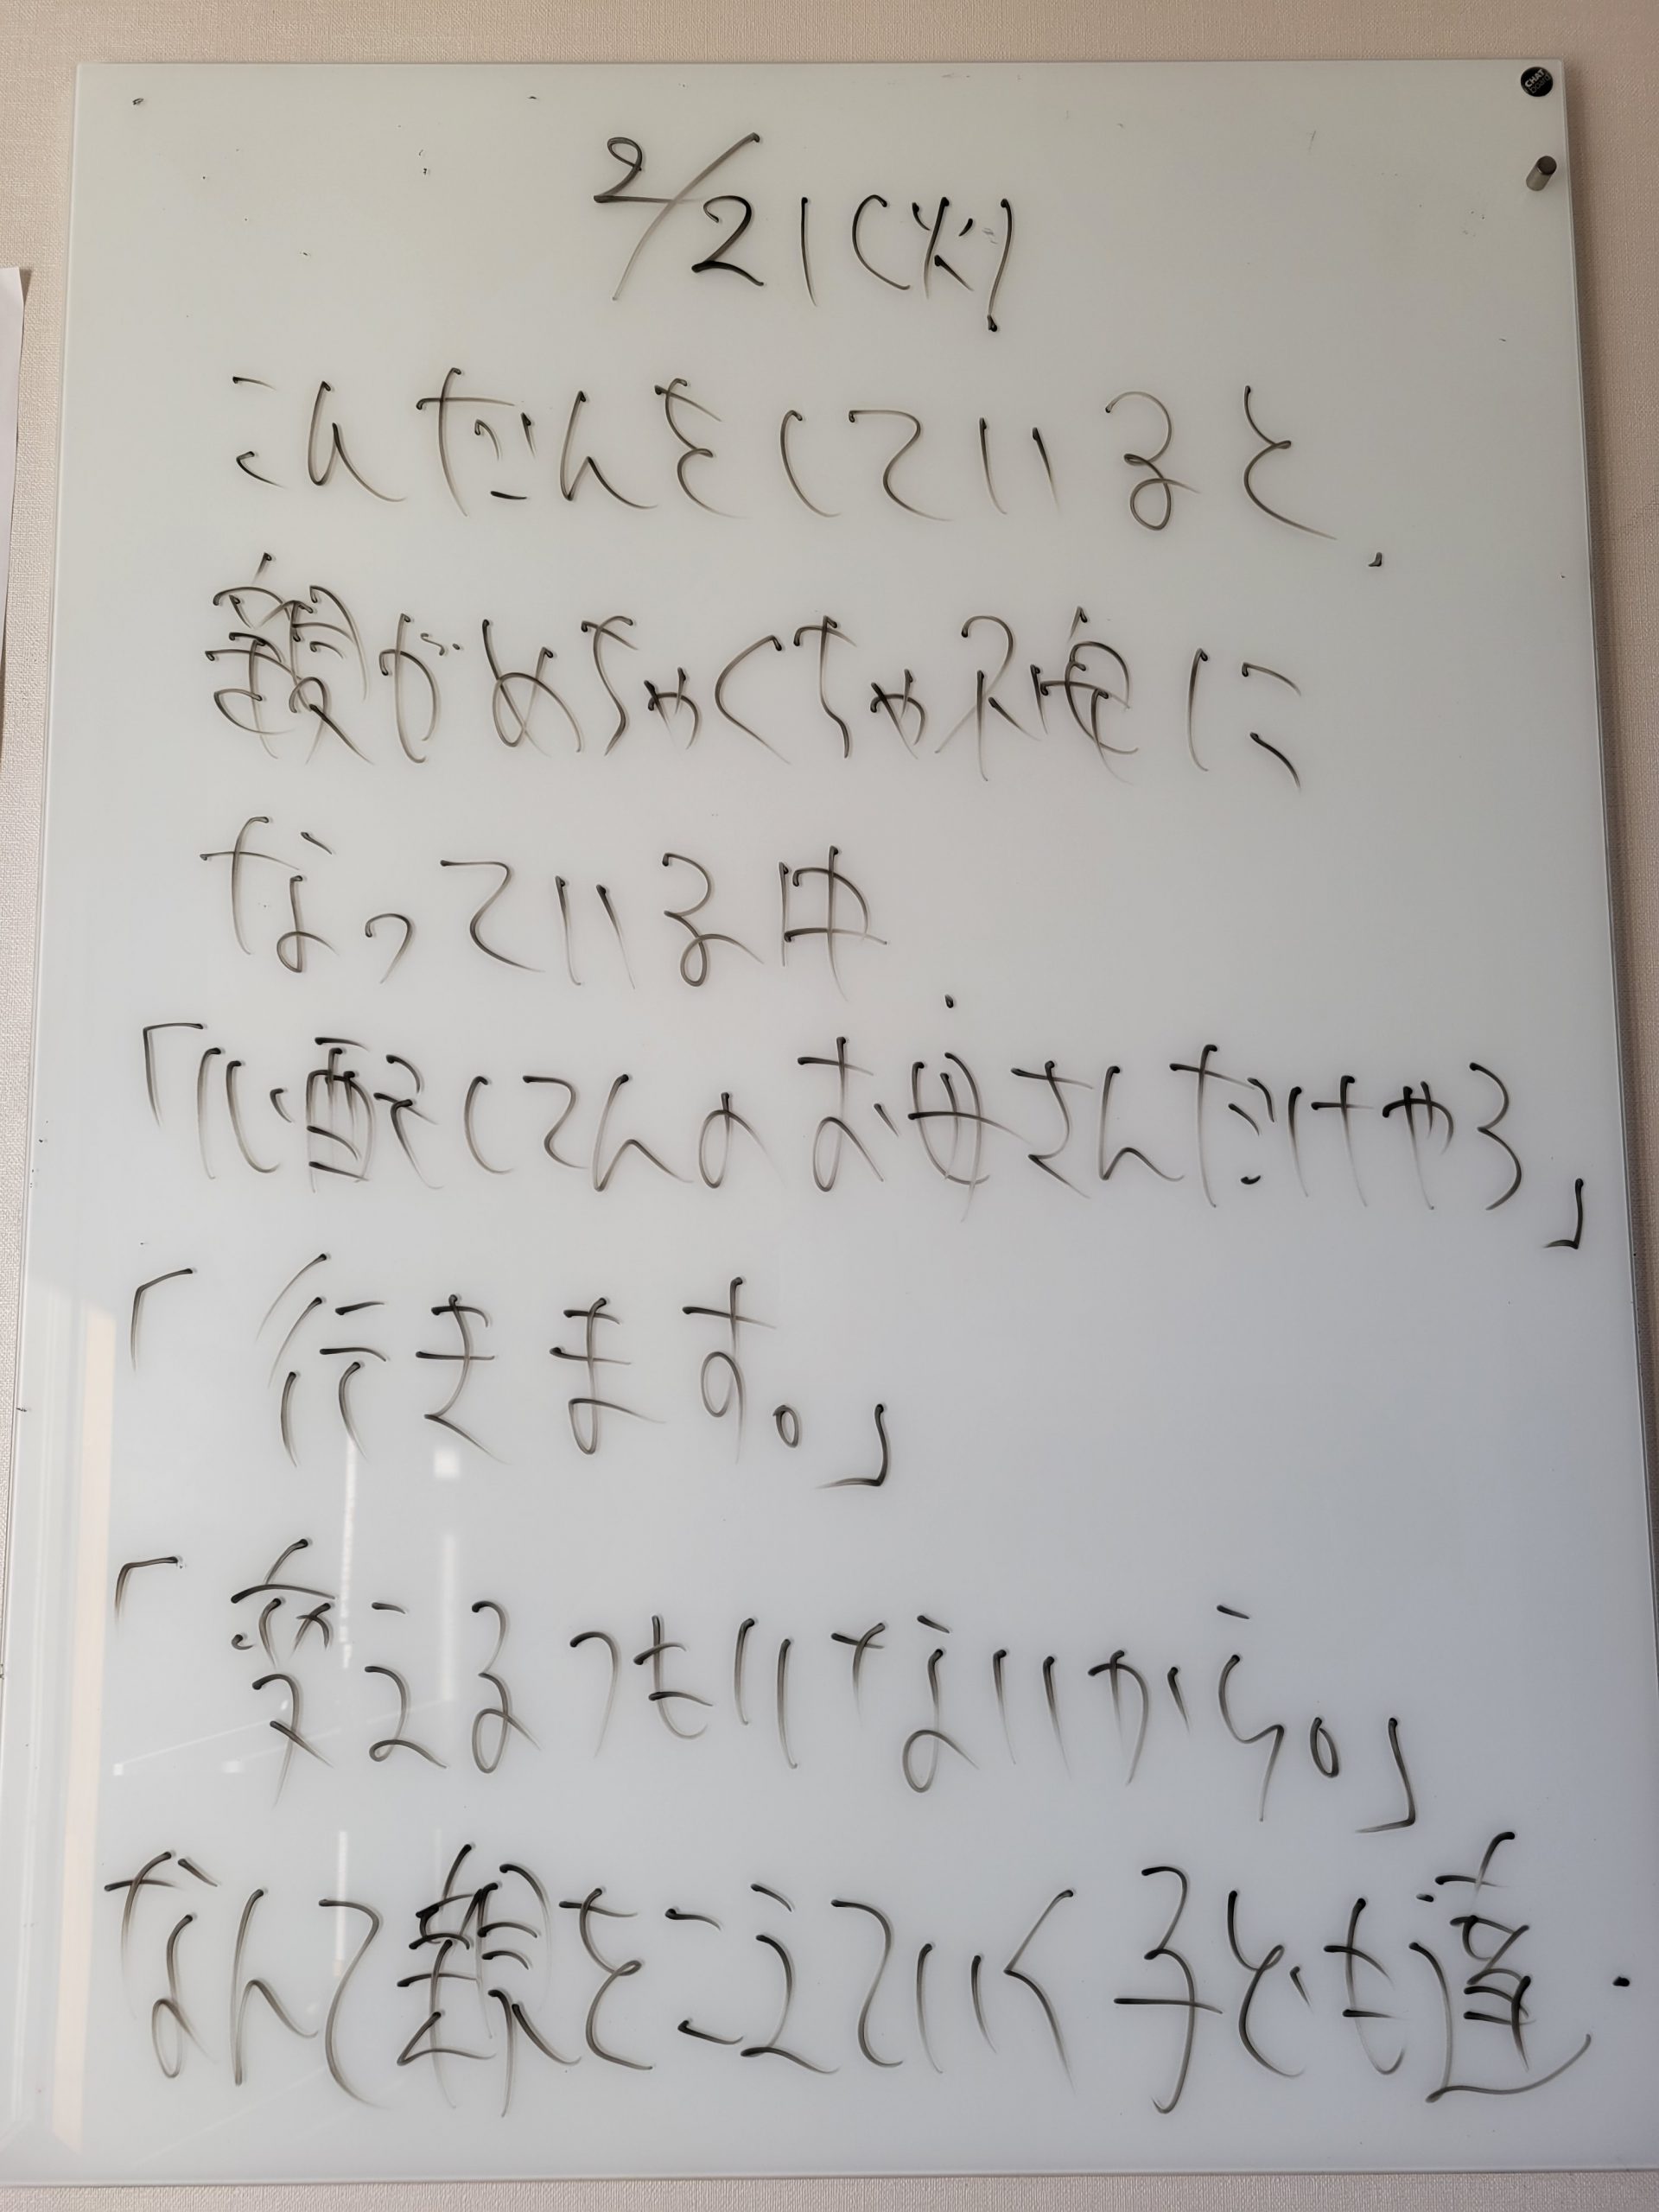 CHAT board
2/21(火)
こんだんをしていると、
親がめちゃくちゃ不安に
なっている中、
「心配してんのお母さんだけやろ」
「行きます。」
「変えるつもりはないから。」
なんて親をこえていく子ども達.